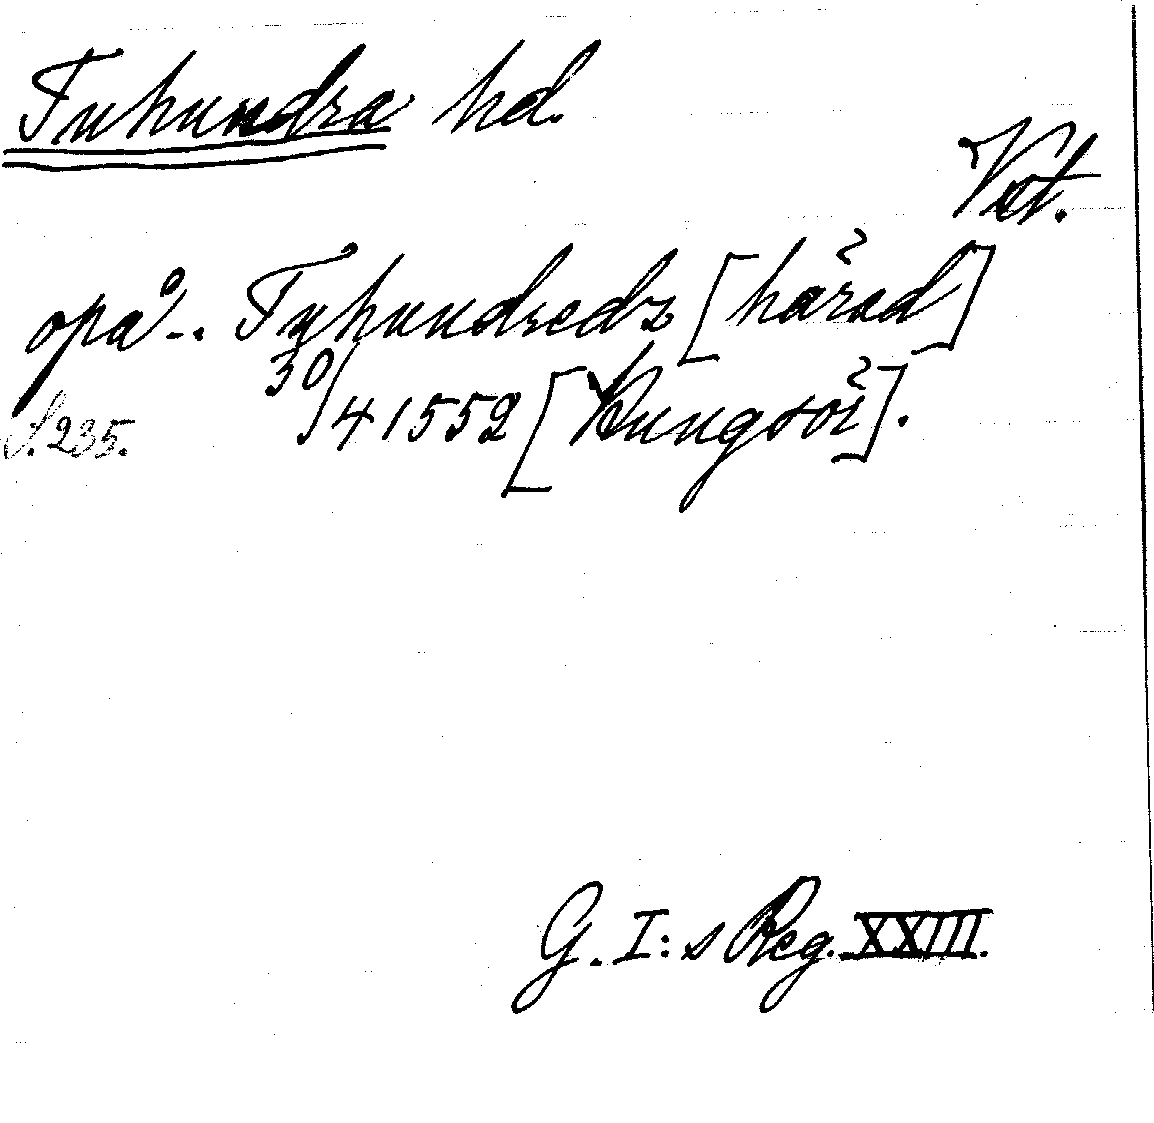 Tuhundra hd.
Vst.
opå -. Tuhundredz [härad]
30/4 1552 [Kungsör].
S. 235.
G. I:s Reg. XXIII.